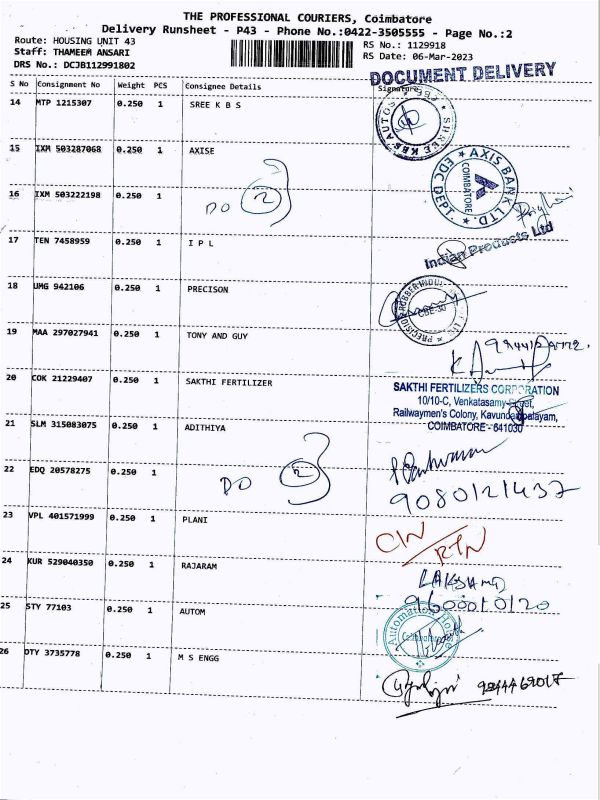 THE PROFESSIONAL COURIERS, Coimbatore
Delivery Runsheet - P43 - Phone No.:0422-3505555 - Page No.:2
Route: HOUSING UNIT 43
RS No.: 1129918
Staff: THAMEEM ANSARI
RS Date: 06-Mar-2023
DRS No.: DCJB112991802
DOCUMENT DELIVERY
S No Consignment No Weight PCS Consignee Details Signature
14 MTP 1215307 0.250 1 SREE K B S
SHREE KBS AUTOS
15 IXM 503287068 0.250 1 AXISE
AXIS BANK LTD.
EDC DEPT.
COIMBATORE
16 IXM 503222198 0.250 1
DO 2
17 TEN 7458959 0.250 1 I P L
Indian Products Ltd
18 UMG 942106 0.250 1 PRECISON
CBE-30
19 MAA 297027941 0.250 1 TONY AND GUY
20 COK 21229407 0.250 1 SAKTHI FERTILIZER
SAKTHI FERTILIZERS CORPORATION
10/10-C, Venkatasamy Street,
Railwaymen's Colony, Kavundampalayam,
COIMBATORE - 641030
21 SLM 315083075 0.250 1 ADITHIYA
22 EDQ 20578275 0.250 1
DO 2
9080121437
23 VPL 401571999 0.250 1 PLANI
RTN
24 KUR 529040350 0.250 1 RAJARAM
25 STY 77103 0.250 1 AUTOM
9600010120
Automation House
26 DTY 3735778 0.250 1 M S ENGG